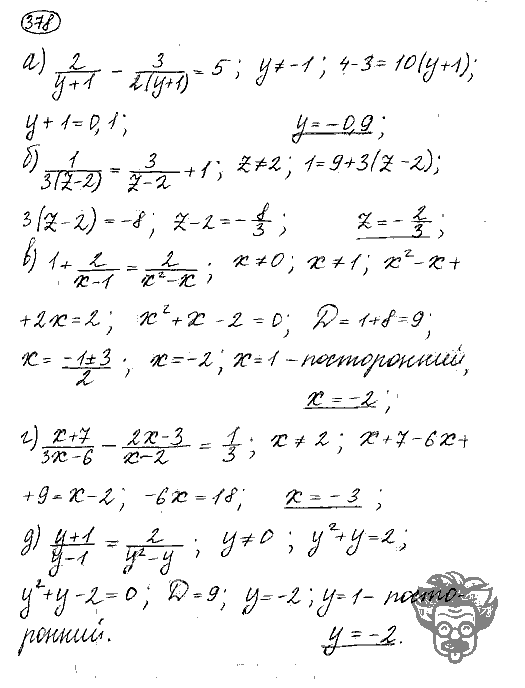 378
а) 2/(y+1) - 3/(2(y+1)) = 5; y≠-1; 4-3=10(y+1);
y+1=0,1; y=-0,9;
б) 1/(3(z-2)) = 3/(z-2) + 1; z≠2; 1=9+3(z-2);
3(z-2)=-8; z-2=-8/3; z=-2/3;
в) 1+ 2/(x-1) = 2/(x²-x); x≠0; x≠1; x²-x+
+2x=2; x²+x-2=0; D=1+8=9;
x= (-1±3)/2; x=-2; x=1 - посторонний,
x=-2;
г) (x+7)/(3x-6) - (2x-3)/(x-2) = 1/3; x≠2; x+7-6x+
+9=x-2; -6x=18; x=-3;
д) (y+1)/(y-1) = 2/(y²-y); y≠0; y²+y=2;
y²+y-2=0; D=9; y=-2; y=1 - посто-
ронний. y=-2.